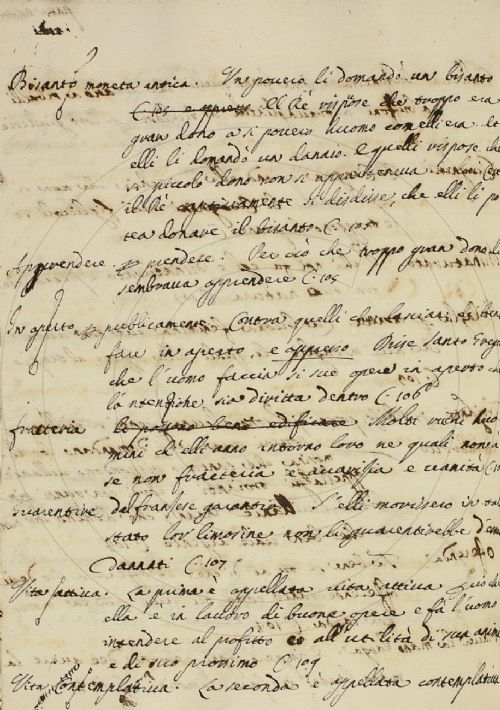 Bisanto moneta antica. Un povero li domandò un bisanto
C. 105 e appresso Il Rè rispose che troppo era
gran dono a si povero huomo com elli era. et
elli li domandò un danaio. e quelli rispose che
si piccolo dono non si appartenea a lui
il Rè si disdisse, che elli li po
tea donare il bisanto C. 105
Apprendere. prendere. Per ciò che troppo gran dono li
sembrava apprendere C. 105
In aperto, publicamente. Contra quelli che lasciati di ben
fare in aperto e appresso Disse Santo Greg
che l'uomo faccia si sue opere in aperto che
la ntenzione sia diritta dentro C. 106
fratteria. Molti ricchi huo
mini d'elli anno intorno loro ne quali non a
se non fratteria e avarisia e vanità
Guarentire dal franzese garantir. S'elli morissero in tal
stato lor limosine non li guarentirebbe d'essere
dannati C. 107
Vita attiva. La prima è appellata vita attiva
ella è in lavoro di buone opere e fà l'uomo
intendere al profitto e all'utilità di sua anima
e di suo prossimo C. 109
Vita Contemplativa. La seconda è appellata contemplativa